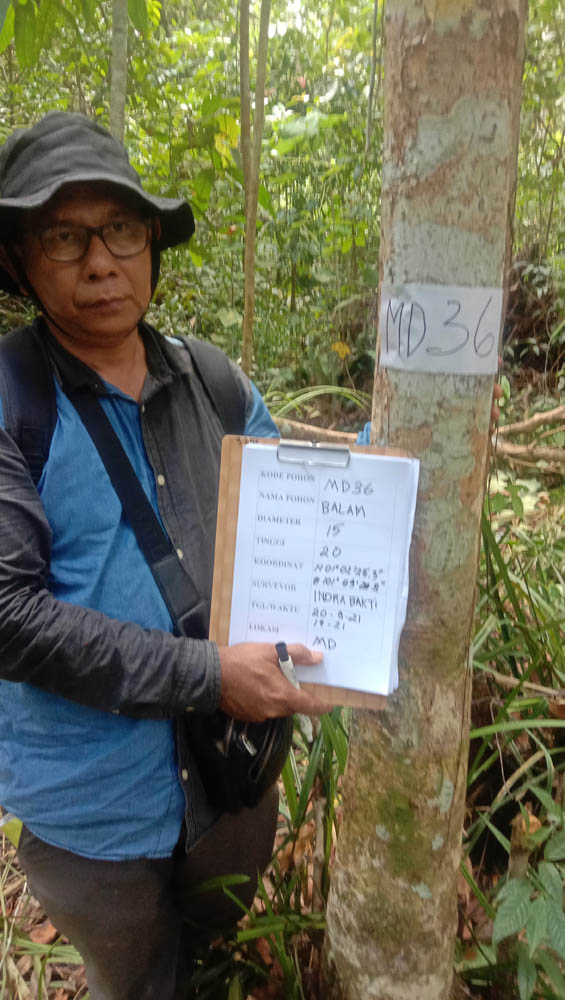 MD36
KODE POHON MD36
NAMA POHON BALAM
DIAMETER 15
TINGGI 20
KOORDINAT N 01° 02'
SURVEYOR INDRA BAKTI
TGL/WAKTU 20-9-21
17-21
LOKASI MD